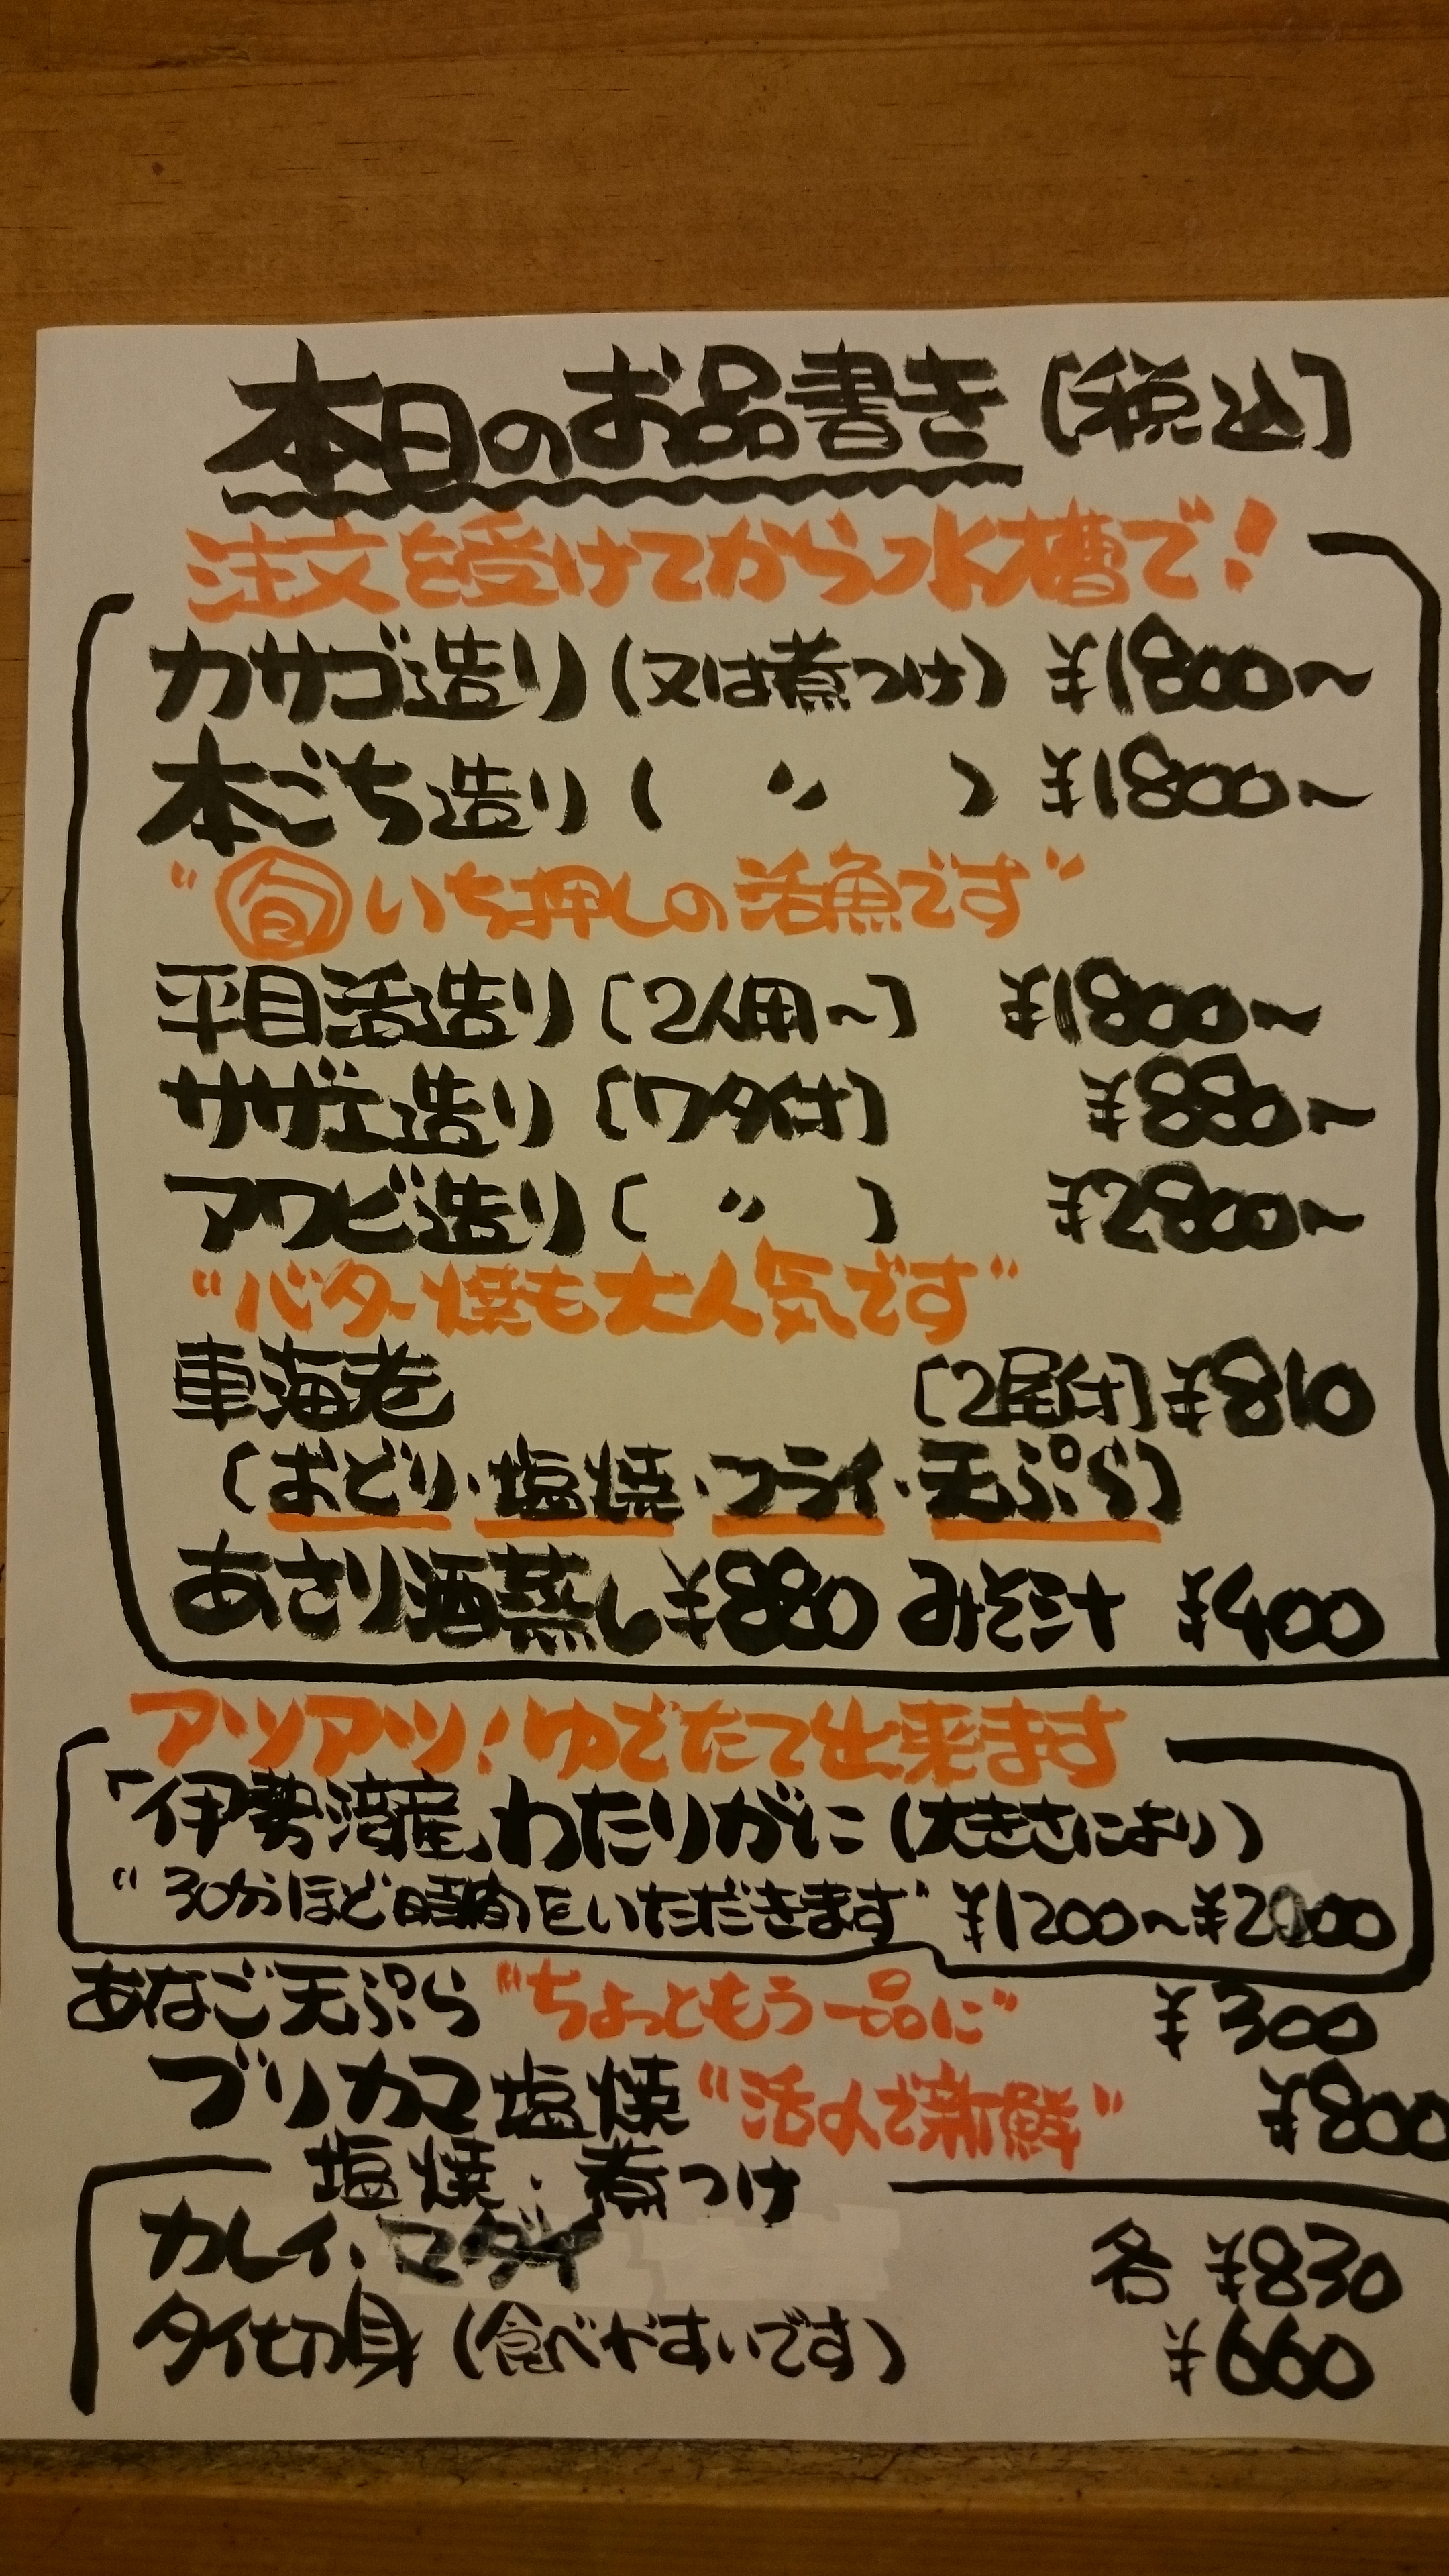 本日のお品書き〔税込〕
注文を受けてから水槽で!
カサゴ造り(又は煮つけ) ¥1800〜
本ごち造り( 〃 ) ¥1800〜
"旬いち押しの活魚です"
平目活造り〔2人用〜〕 ¥1800〜
サザエ造り〔ワタ付〕 ¥880〜
アワビ造り〔 〃 〕 ¥2800〜
"バター焼も大人気です"
車海老 〔2尾付〕¥810
〔おどり・塩焼・フライ・天ぷら〕
あさり酒蒸し¥880 みそ汁 ¥400
アツアツ!ゆでたて出来ます
「伊勢湾産」わたりがに(大きさにより)
"30分ほど時間をいただきます" ¥1200〜¥2000
あなご天ぷら"ちょっともう一品に" ¥300
ブリカマ塩焼"活〆で新鮮" ¥800
塩焼・煮つけ
カレイ・マダイ 各 ¥830
タイ切身(食べやすいです) ¥660